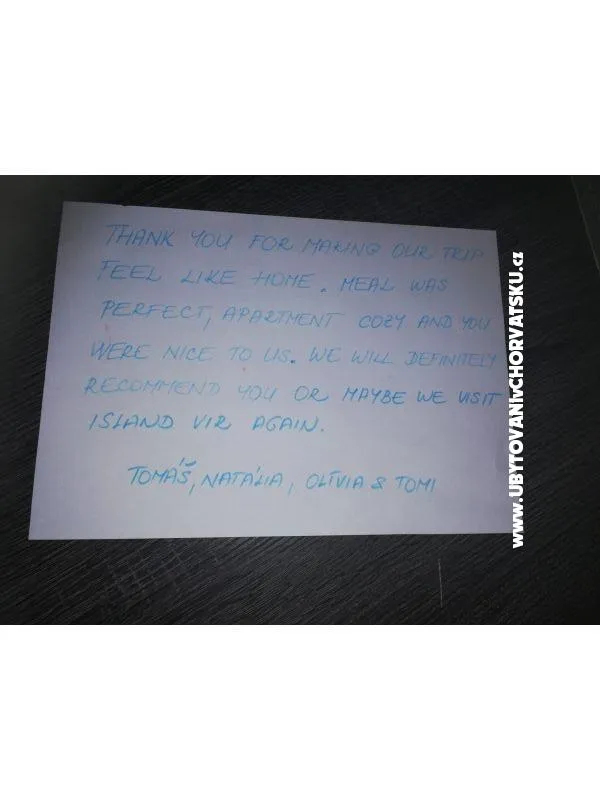 THANK YOU FOR MAKING OUR TRIP
FEEL LIKE HOME. MEAL WAS
PERFECT, APARTMENT COZY AND YOU
WERE NICE TO US. WE WILL DEFINITELY
RECOMMEND YOU OR MAYBE WE VISIT
ISLAND VIR AGAIN.
TOMÁŠ, NATÁLIA, OLÍVIA & TOMI
www.UBYTOVANIvCHORVATSKU.cz